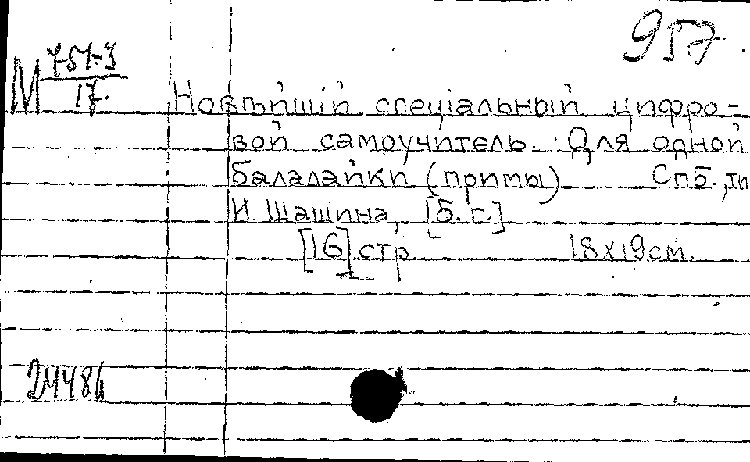 957.
М 751-3
17.
Новѣйшій спеціальный цифро-
вой самоучитель. Для одной
балалайки (примы) Спб., тп
И Шашина, [б. г.]
[16] стр 18х19 см.
24486